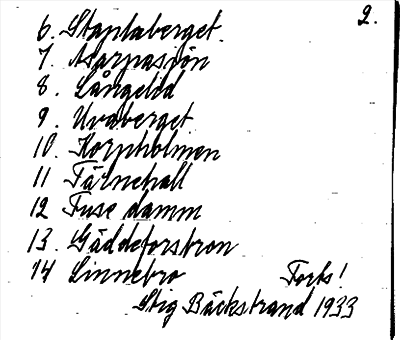 2.
6. Staplaberget.
7. Asarpasjön
8. Långelid
9. Uvaberget
10. Kornholmen
11 Tärnehall
12 Fuse damm
13. Gäddeforsbron
14 Linnebro Forts!
Stig Bäckstrand 1933